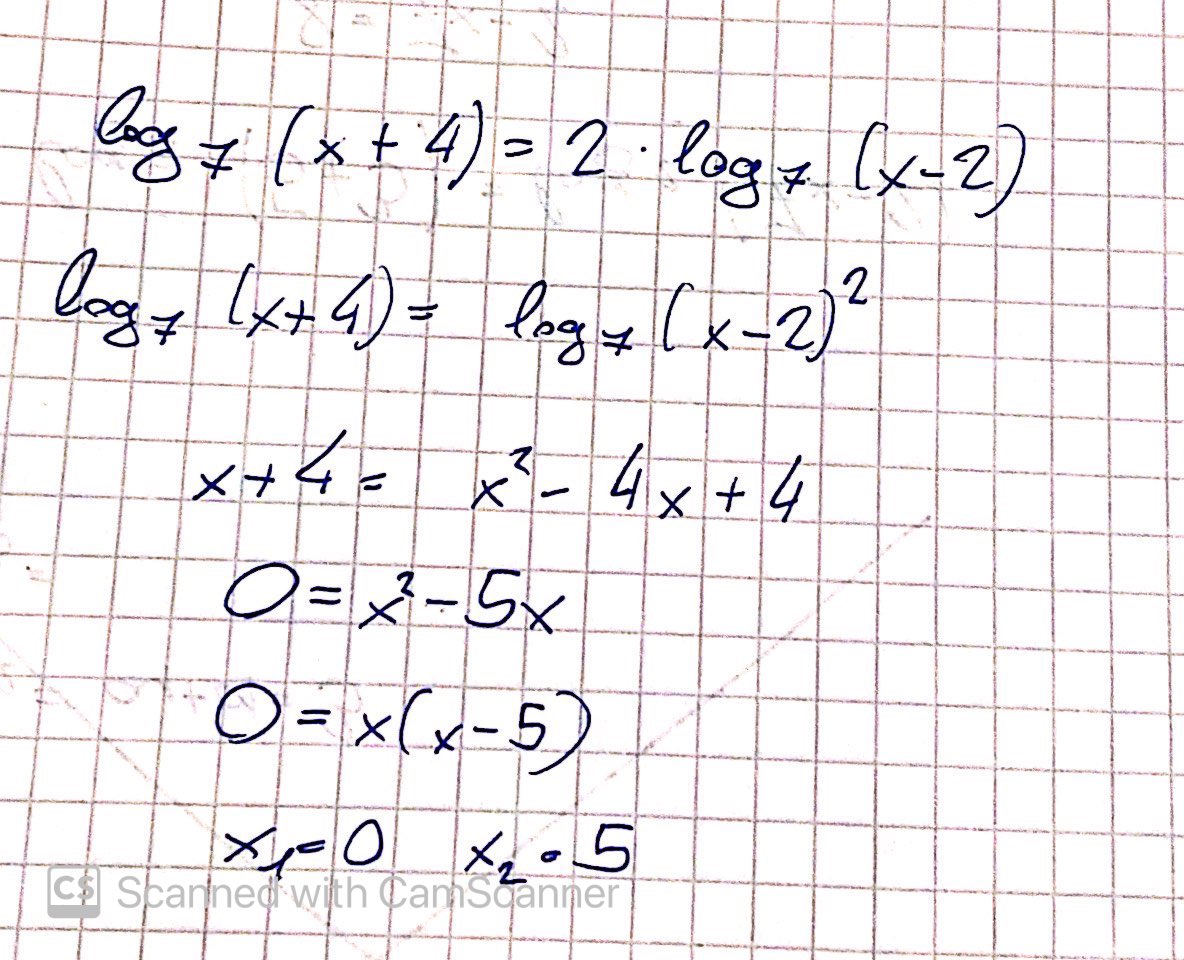 log₇ (x + 4) = 2 · log₇ (x-2)
log₇ (x+4) = log₇ (x-2)²
x+4 = x² - 4x + 4
0 = x² - 5x
0 = x(x-5)
x₁=0 x₂=5
CS Scanned with CamScanner